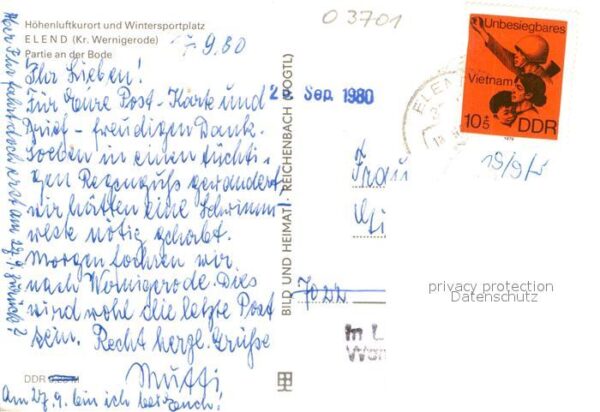 Höhenluftkurort und Wintersportplatz
ELEND (Kr. Wernigerode)
Partie an der Bode
17.9.80
Ihr Lieben!
Für Eure Post-Karte und
Brief - freudigen Dank.
Soeben in einen tüchti-
gen Regenguß gewandert,
wir hätten eine Schwimm-
weste nötig gehabt.
Morgen fahren wir
nach Wernigerode. Dies
wird wohl die letzte Post
sein. Recht herzl. Grüße
Mutti
DDR
Am 27.9. bin ich bei euch!
Aber Ihr fahrt doch erst am 27.9. zurück?
BILD UND HEIMAT REICHENBACH (VOGTL)
03701
Sep. 1980
ELEND
Unbesiegbares
Vietnam
10+5
DDR
1979
19/9/
Frau
7022
privacy protection
Datenschutz
In L